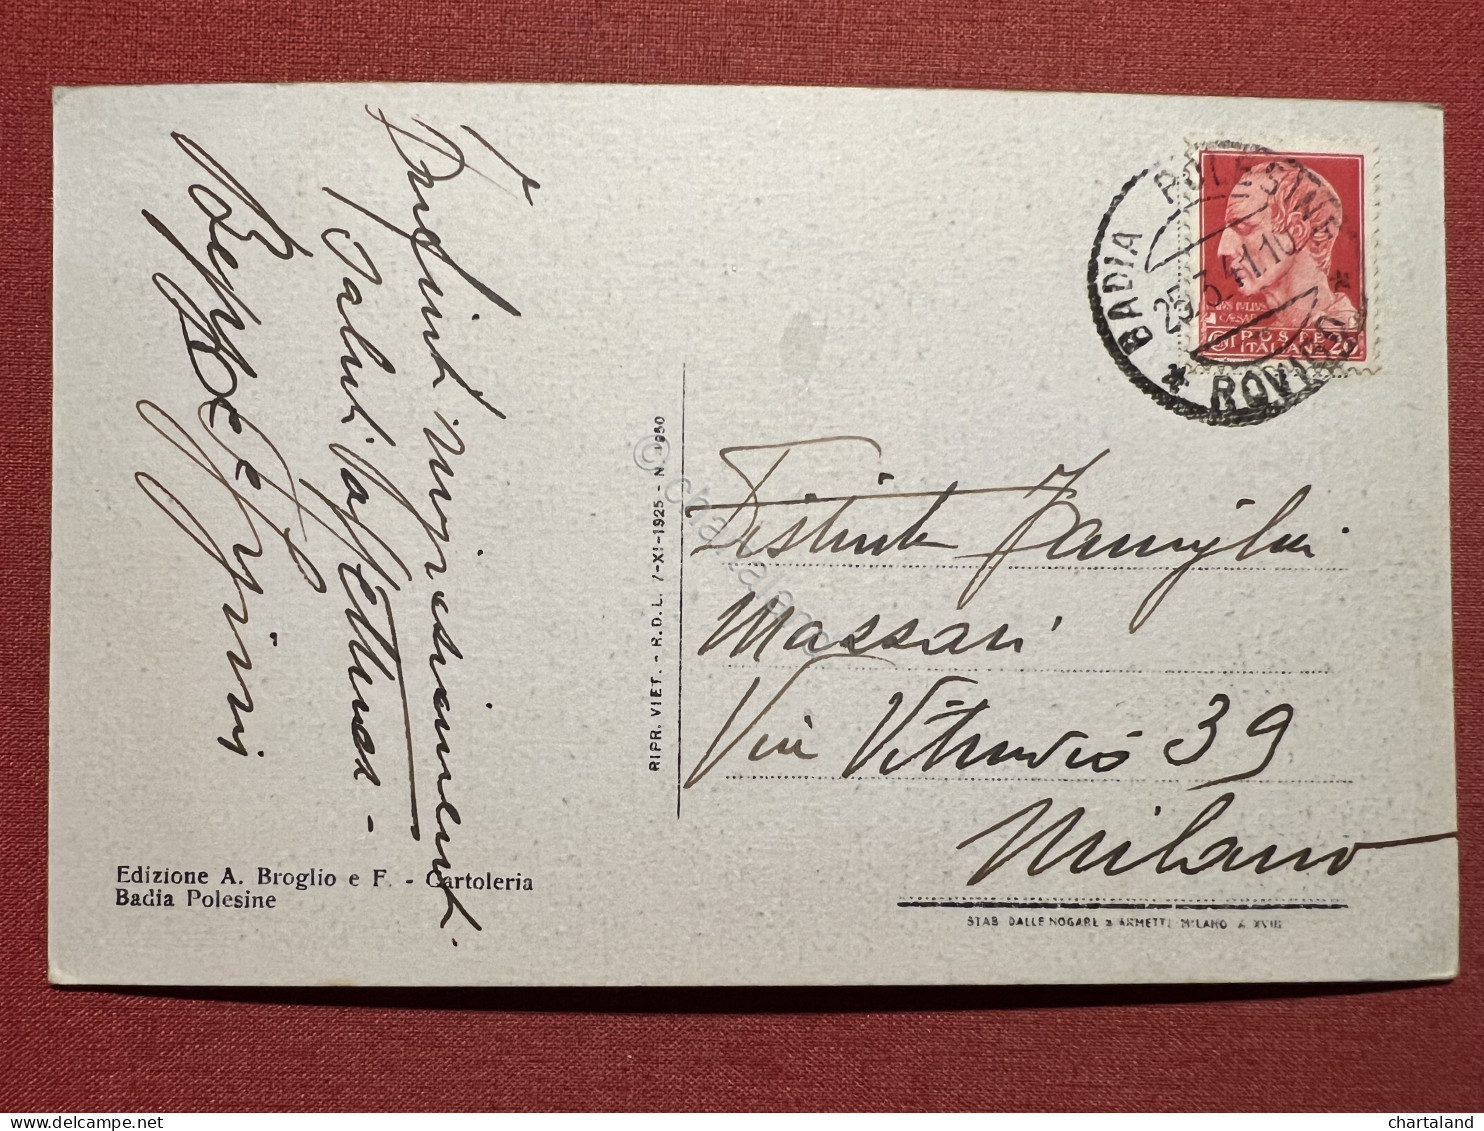 Infiniti ringraziamenti
Saluti affettuosi -
Beppe e Gini
Edizione A. Broglio e F. - Cartoleria
Badia Polesine
RIPR. VIET. - R. D. L. 7-XI-1925 - N. 1950
© chartaland
BADIA POLESINE
25.3.41.10
* ROVIGO *
IVLIVS
CAESAR
POSTE
ITALIANE
20
Distinta Famiglia
Massari
Via Vitruvio 39
Milano
STAB. DALLE NOGARE & ARMETTI MILANO A XVIII
chartaland
delcampe.net